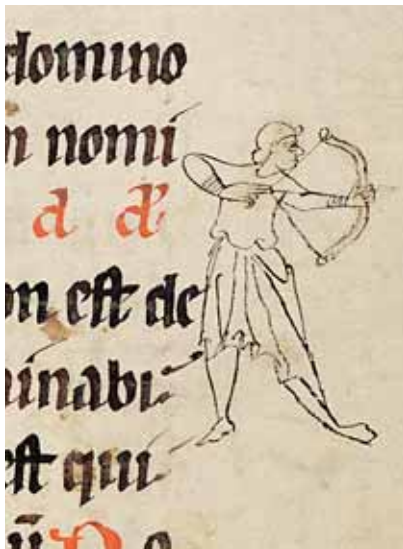 domino
n nomi
a æ
on est de
inabi
est qui